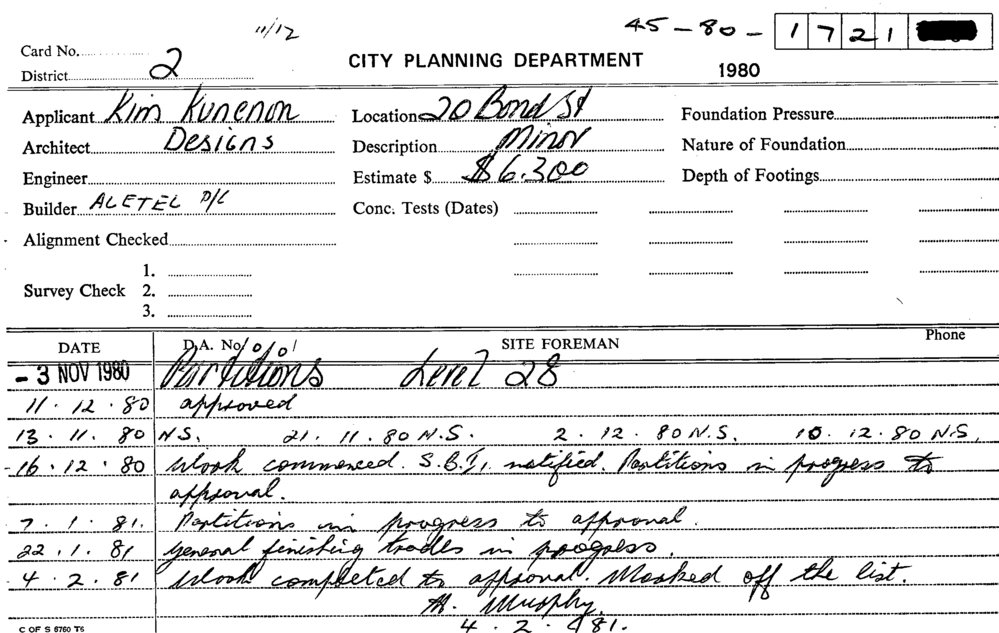 11/12 45-80-1721
Card No.
District 2 CITY PLANNING DEPARTMENT 1980
Applicant Kim Kunenon Location 20 Bond St Foundation Pressure
Architect Designs Description Minor Nature of Foundation
Engineer Estimate $ $6.300 Depth of Footings
Builder ALETEL P/L Conc. Tests (Dates)
Alignment Checked
1.
Survey Check 2.
3.
DATE D.A. No. SITE FOREMAN Phone
- 3 NOV 1980 Partitions Level 28
11.12.80 approved
13.11.80 N.S. 21.11.80 N.S. 2.12.80 N.S. 10.12.80 N.S.
16.12.80 Work commenced. S.B.I. notified. Partitions in progress to
approval.
7.1.81. Partitions in progress to approval.
22.1.81 General finishing trades in progress.
4.2.81 Work completed to approval. Marked off the list.
Murphy.
4.2.81.
C OF S 6760 T6